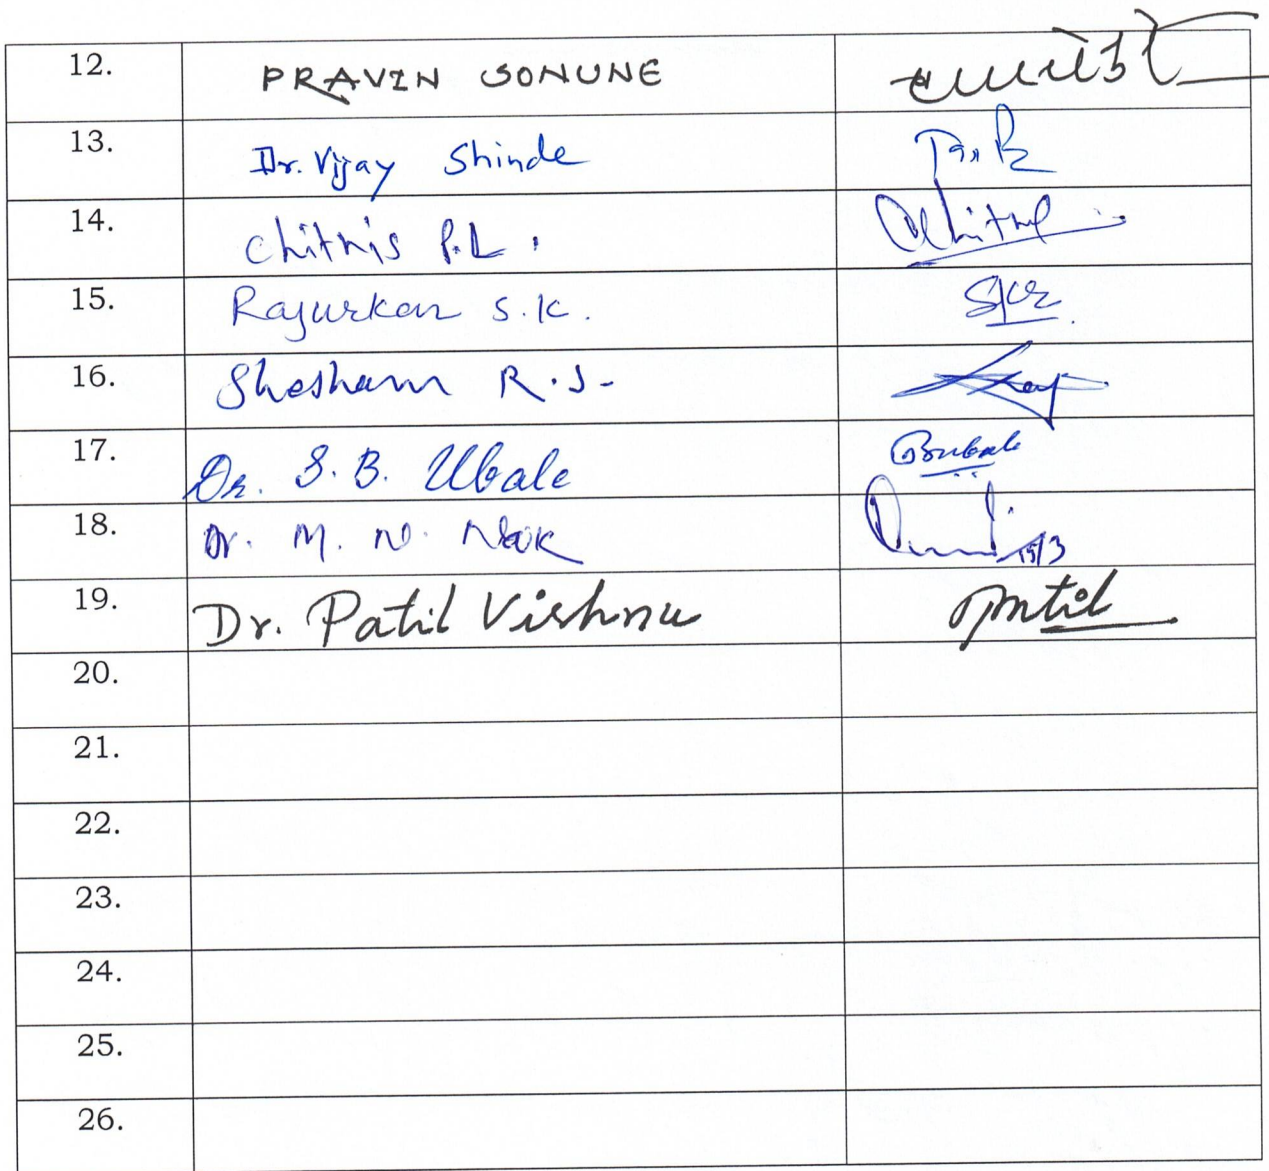 12. PRAVIN SONUNE
13. Dr. Vijay Shinde
14. Chitnis P.L.
15. Rajurkar S.K. SKR
16. Shesham R.J.
17. Dr. S. B. Ubale
18. Dr. M. N. 15/3
19. Dr. Patil Vishnu Patil
20.
21.
22.
23.
24.
25.
26.